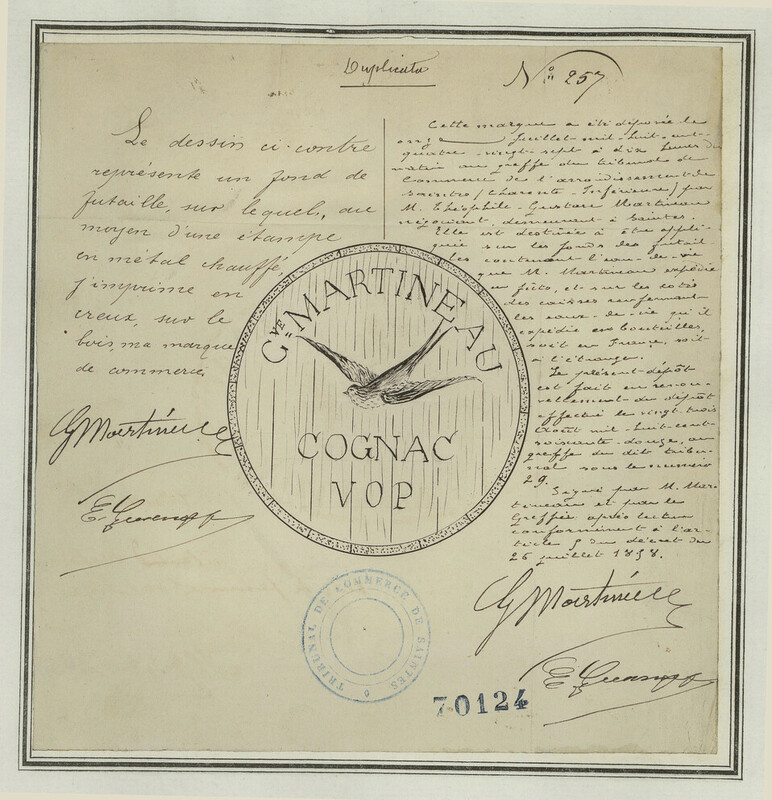 Duplicata
N° 257
Le dessin ci-contre
représente un fond de
futaille, sur lequel, au
moyen d'une étampe
en métal chauffé,
j'imprime en
creux, sur le
bois, ma marque
de commerce.
G Martineau
Cette marque a été déposée le
onze juillet mil-huit-cent-
quatre-vingt-sept à dix heures du
matin au greffe du tribunal de
Commerce de l'arrondissement de
Saintes (Charente-Inférieure) par
M. Théophile-Gustave Martineau
négociant, demeurant à Saintes.
Elle est destinée à être appli-
quée sur les fonds des futail-
les contenant l'eau-de-vie
que M. Martineau expédie
en fûts, et sur les côtés
des caisses renfermant
les eaux-de-vie qu'il
expédie en bouteilles,
soit en France, soit
à l'étranger.
Le présent dépôt
est fait en renou-
vellement du dépôt
effectué le vingt-trois
août mil-huit-cent-
soixante-douze, au
greffe du dit tribu-
nal sous le numéro
29.
Signé par M. Mar-
tineau et par le
Greffier après lecture
conformément à l'ar-
ticle 5 du décret du
26 juillet 1858.
G Martineau
Gve MARTINEAU
COGNAC
VOP
TRIBUNAL DE COMMERCE DE SAINTES
70124